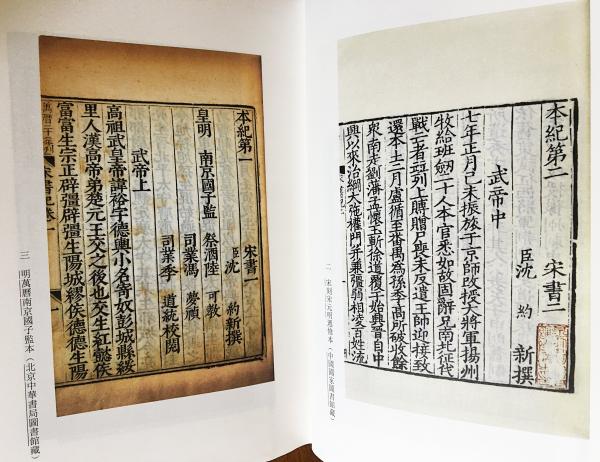 本紀第二 宋書二
臣沈約新撰
武帝中
七年正月己未振旅于京師改授大將軍揚州
牧給班劒二十人本官悉如故固辭凡南北征代
戰亡者並列上賻贈尸喪未反遣王師迎接致
還本土二月盧循至番禺為孫季高所破收餘
衆南走劉藩孟懷玉斬徐道覆于始興晉自中
興以來治綱大弛權門并兼彊弱相凌百姓流
宋書紀二
二 宋刻宋元明遞修本(中國國家圖書館藏)
本紀第一 宋書一
臣沈約新撰
皇明 南京國子監 祭酒陸可教
司業馮夢禎
司業季道統校閱
武帝上
高祖武皇帝諱裕字德輿小名寄奴彭城縣綏
里人漢高帝弟楚元王交之後也交生紅懿侯
富富生宗正辟彊辟彊生陽城繆侯德德生陽
宋書紀卷一
三 明萬曆南京國子監本(北京中華書局圖書館藏)